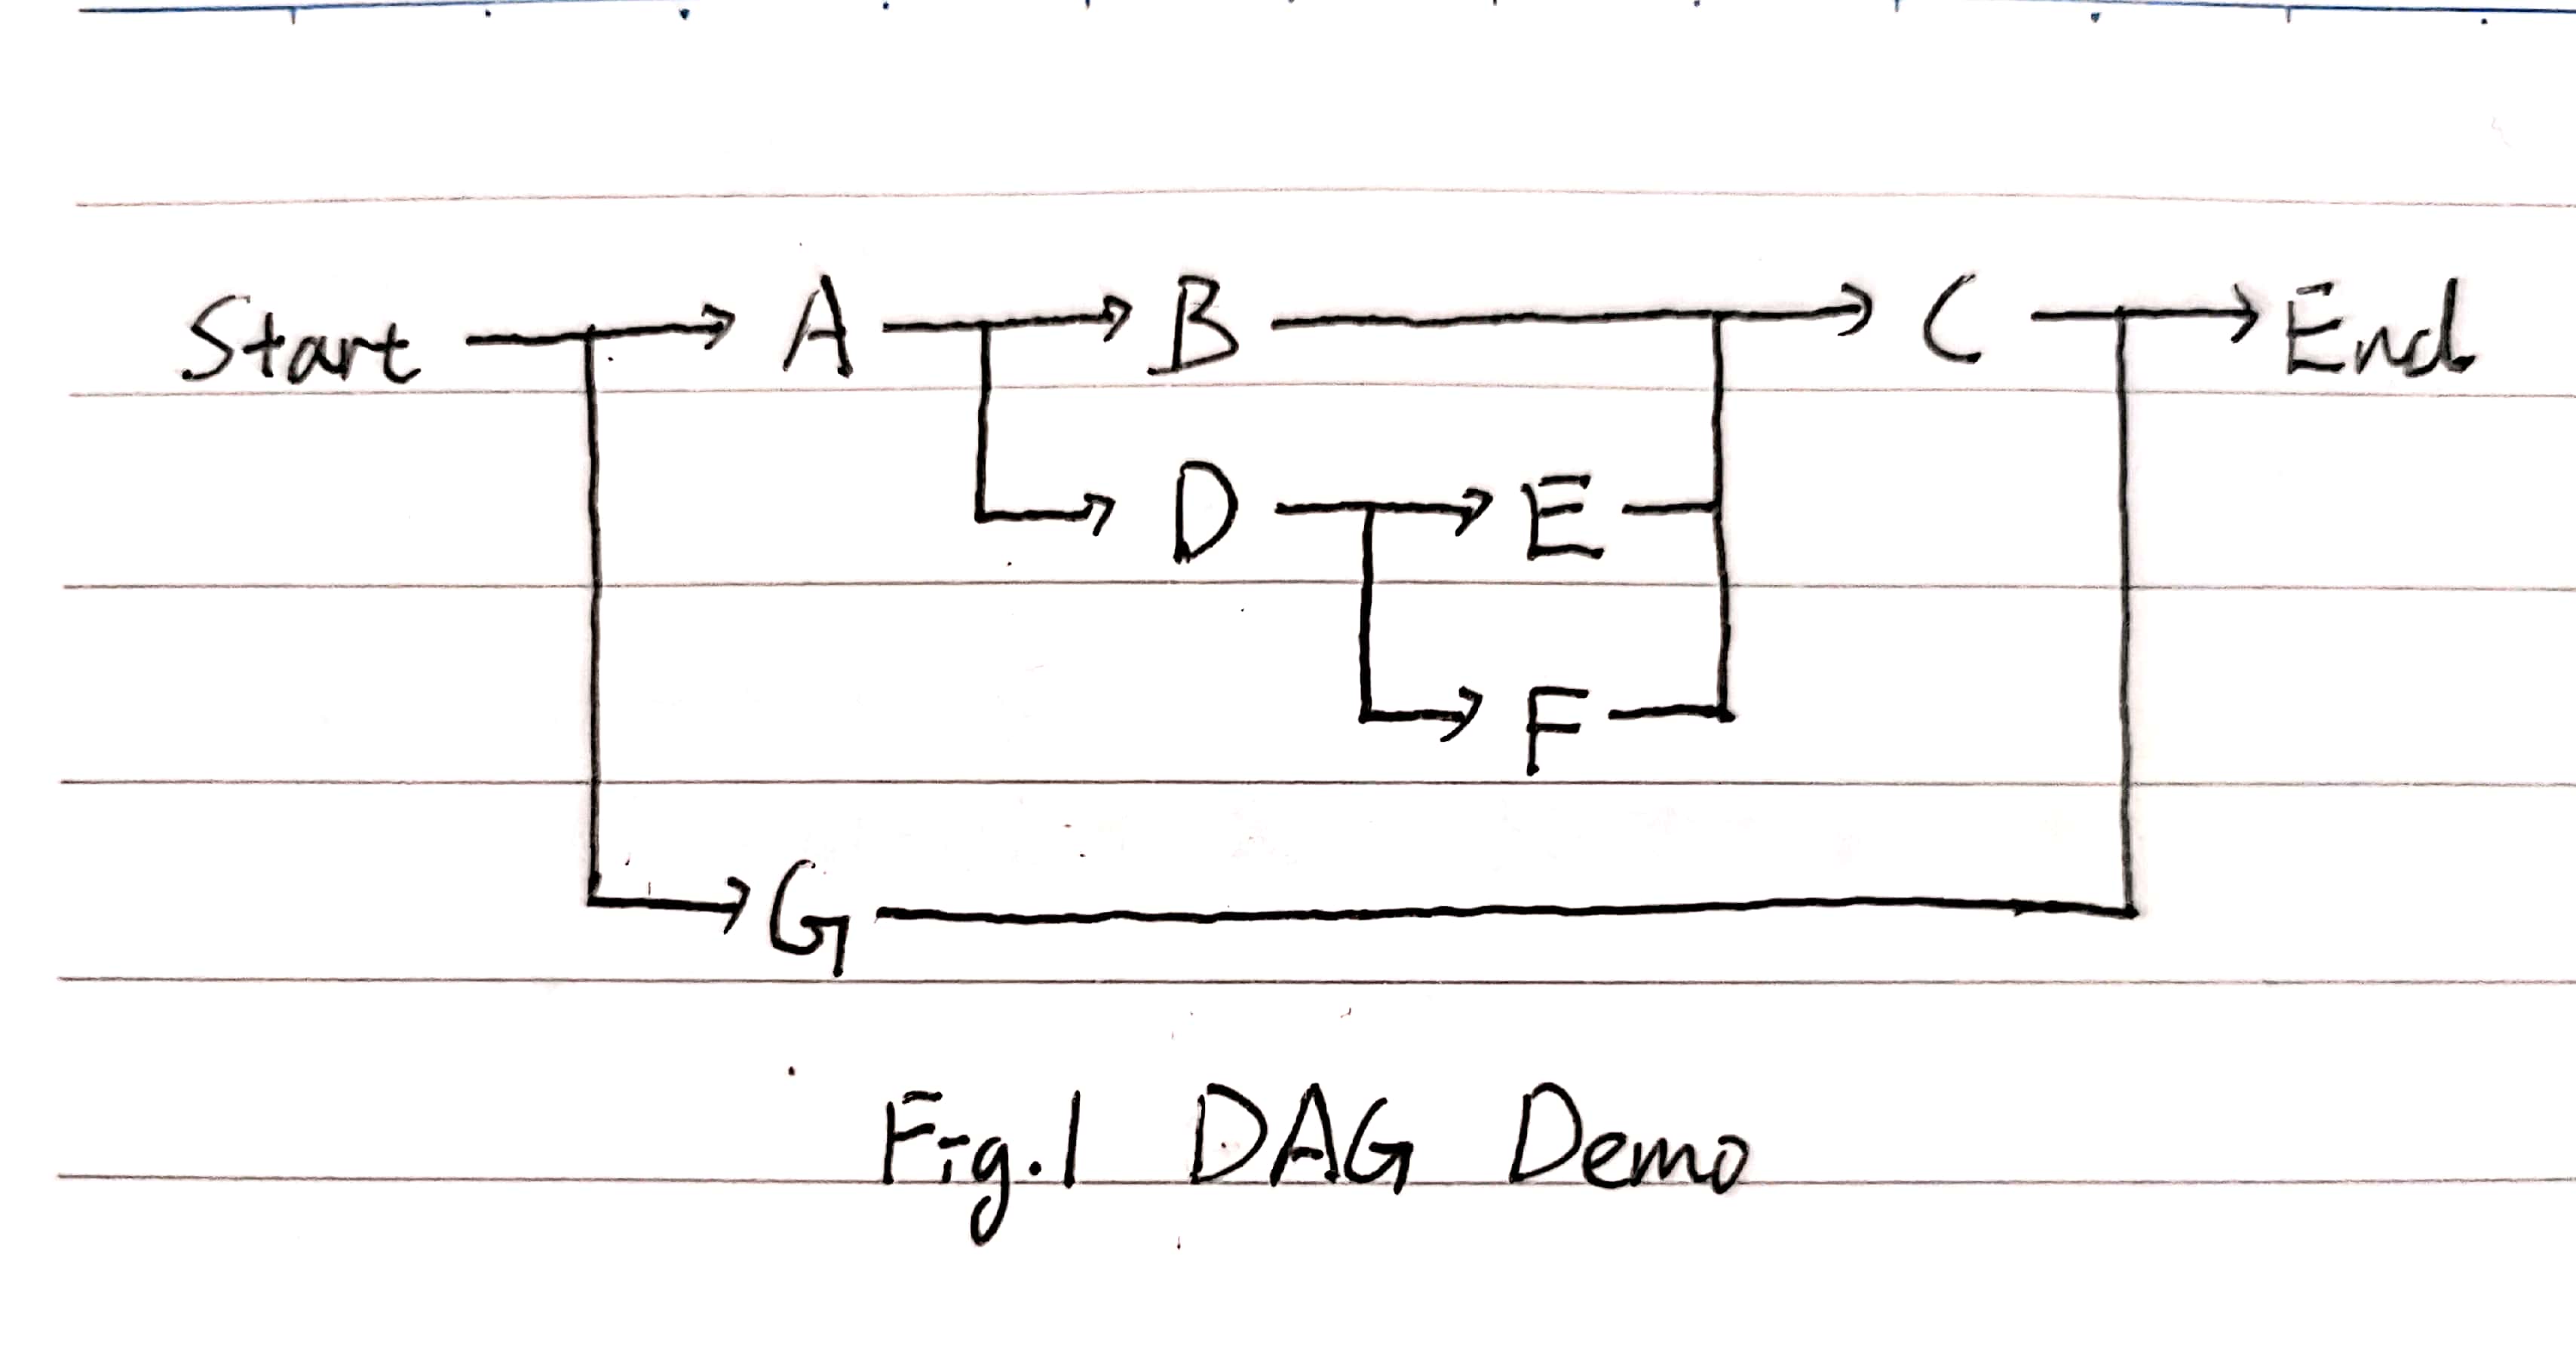 Start A B C End
D E
F
G
Fig.1 DAG Demo